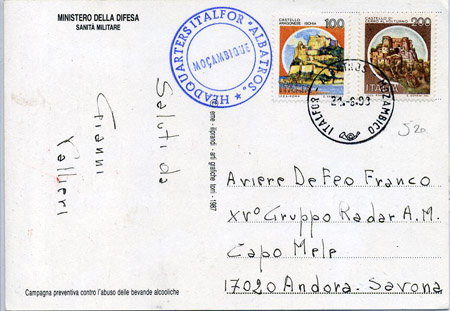 MINISTERO DELLA DIFESA
SANITÀ MILITARE
HEADQUARTERS ITALFOR "ALBATROS"
MOÇAMBIQUE
CASTELLO
ARAGONESE - ISCHIA
100
ITALIA
CASTELLO DI
200
ITALIA
ITALFOR - ALBATROS MOZAMBICO
520
Saluti da
Gianni
arti grafiche
1987
Aviere De Feo Franco
XV° Gruppo Radar A.M.
Capo Mele
17020 Andora. Savona
Campagna preventiva contro l'abuso delle bevande alcooliche